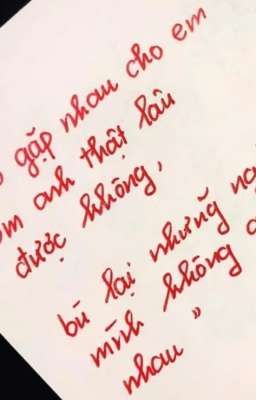 gặp nhau cho em
ôm anh thật lâu
được không,
bù lại những
mình không
nhau "